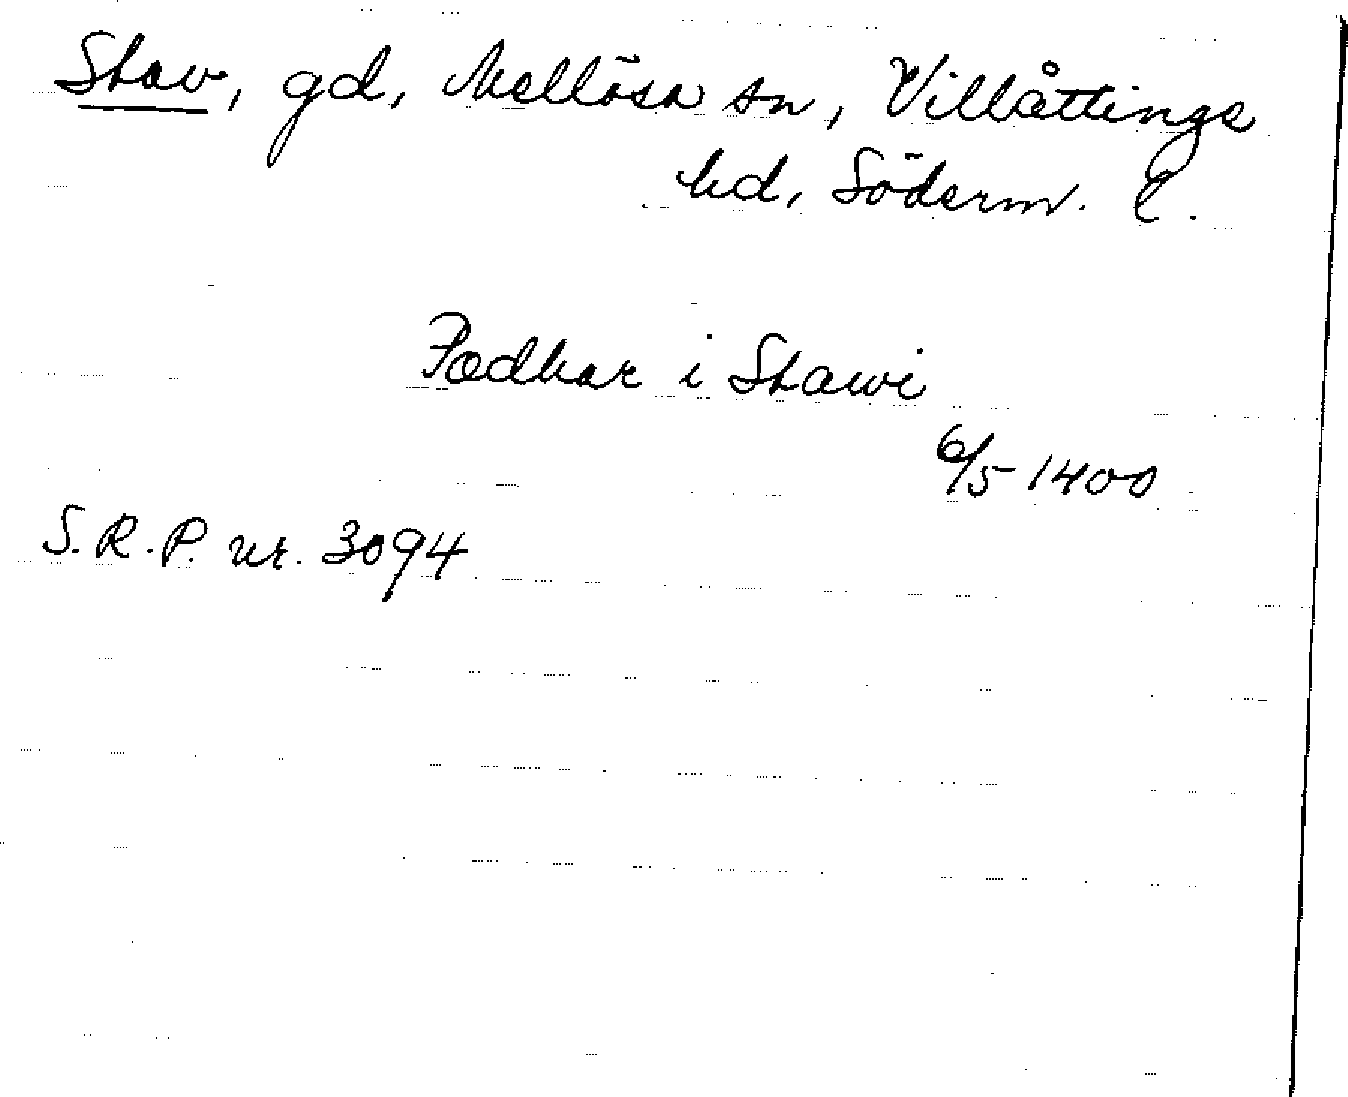 Stav, gd, Mellösa sn, Villåttinge
hd, Söderm. l.
Pædhar i Stawi
6/5 1400
S.R.P. nr. 3094